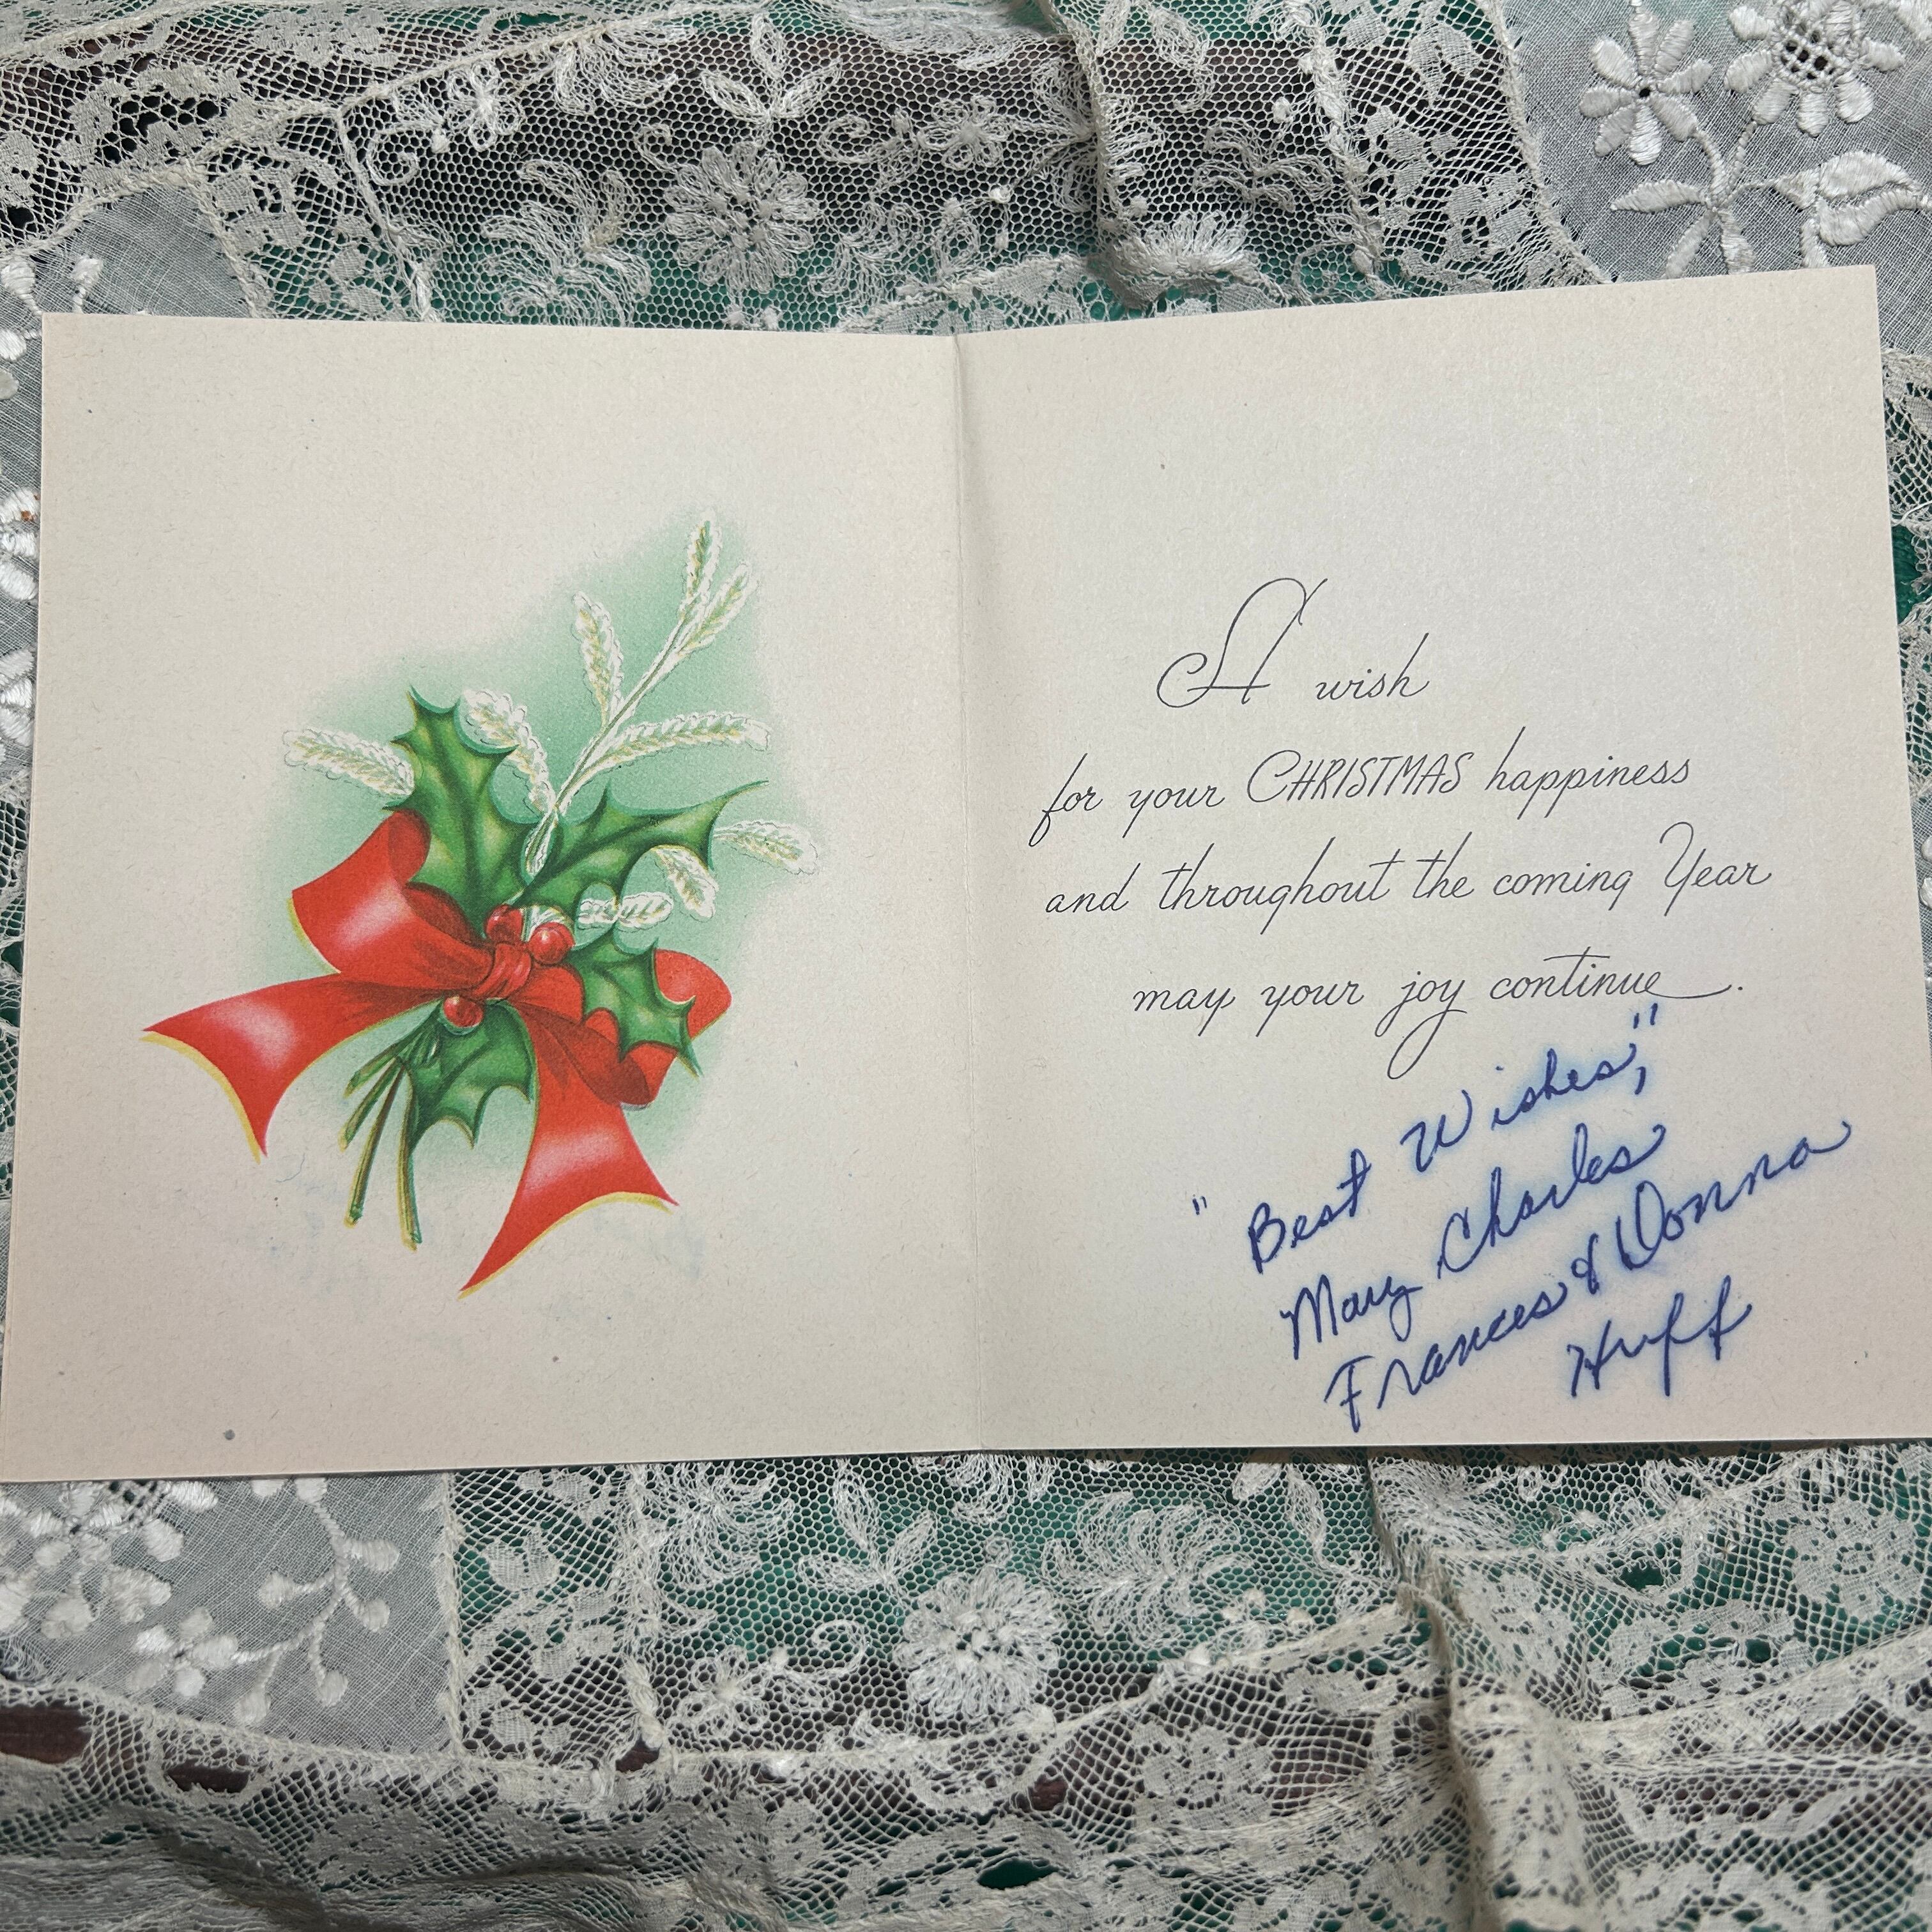 A wish
for your CHRISTMAS happiness
and throughout the coming Year
may your joy continue.
"Best Wishes,"
Mary Charles
Frances & Donna
Huff